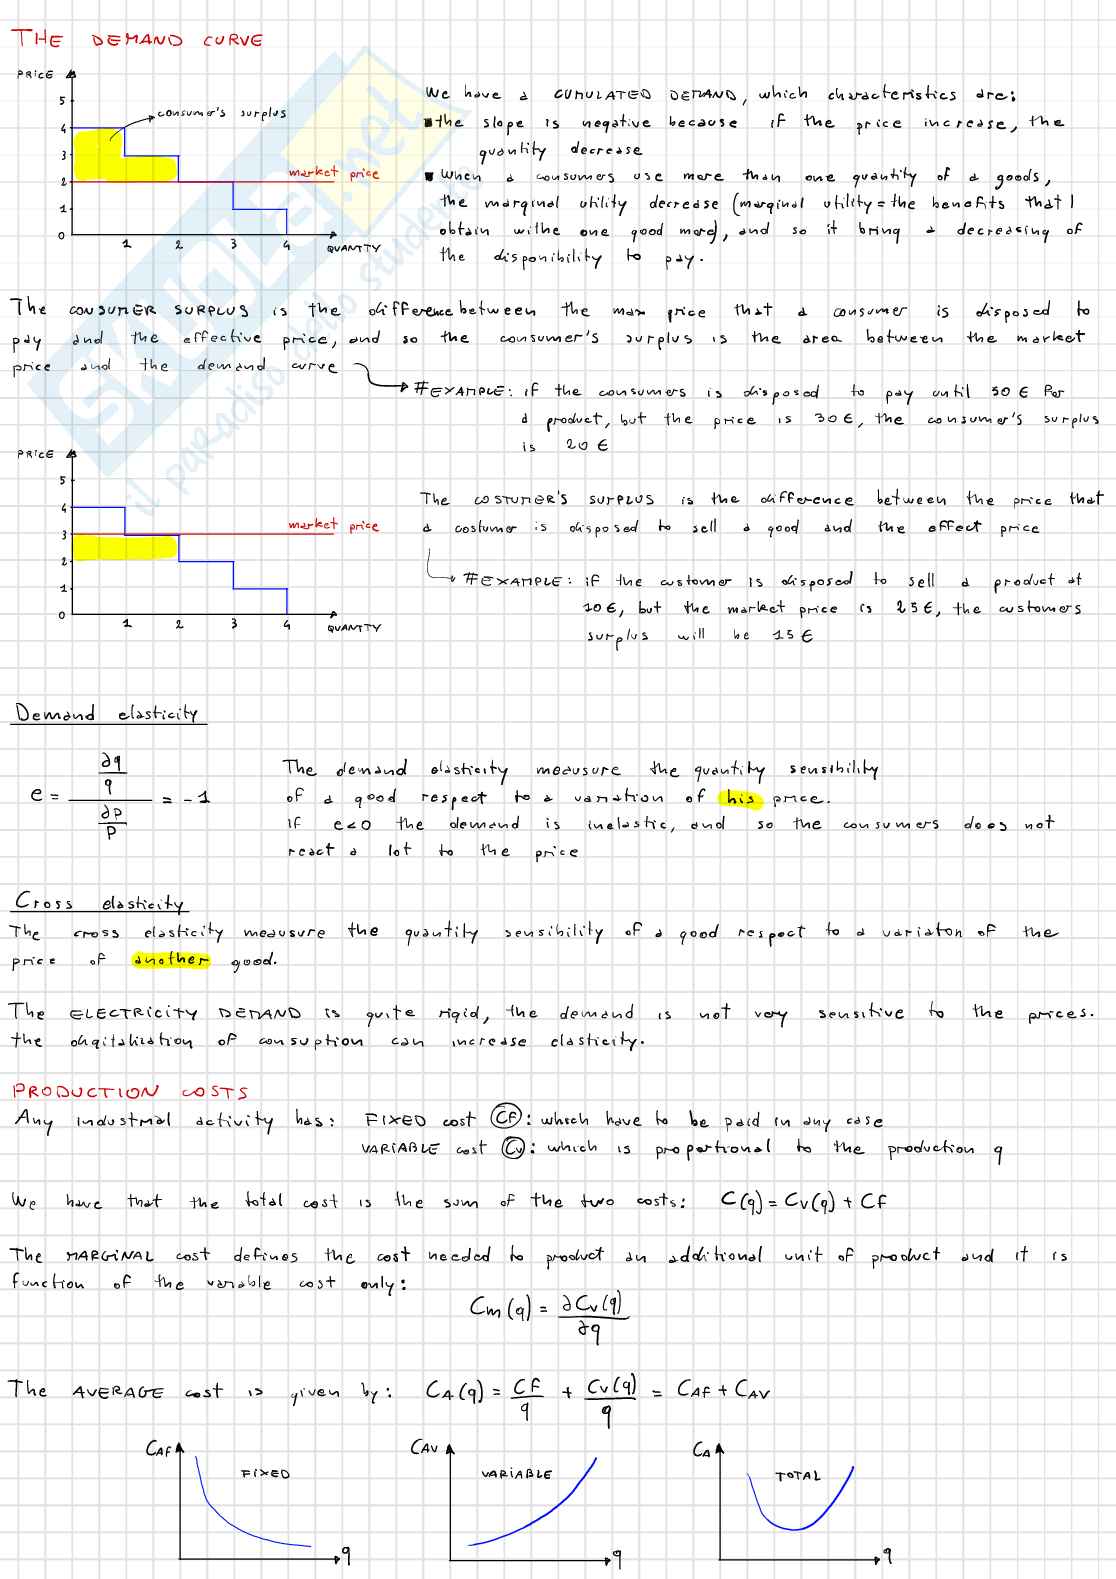 THE DEMAND CURVE
PRICE
5
4
3
2
1
0
1 2 3 4 QUANTITY
consumer's surplus
market price
We have a CUMULATED DEMAND, which characteristics are:
▪the slope is negative because if the price increase, the
quantity decrease
▪ When a consumers use more than one quantity of a goods,
the marginal utility decrease (marginal utility = the benefits that I
obtain withe one good more), and so it bring a decreasing of
the disponibility to pay.
The CONSUMER SURPLUS is the difference between the max price that a consumer is disposed to
pay and the effective price, and so the consumer's surplus is the area between the market
price and the demand curve
#EXAMPLE: if the consumers is disposed to pay until 50 € for
a product, but the price is 30€, the consumer's surplus
is 20 €
PRICE
5
4
3
2
1
0
1 2 3 4 QUANTITY
market price
The COSTUMER'S SURPLUS is the difference between the price that
a costumer is disposed to sell a good and the effect price
#EXAMPLE: if the customer is disposed to sell a product at
10€, but the market price is 25€, the customers
surplus will be 15€
Demand elasticity
e = ∂q/q / ∂P/P = -1
The demand elasticity meausure the quantity sensibility
of a good respect to a variation of his price.
If e<0 the demand is inelastic, and so the consumers does not
react a lot to the price
Cross elasticity
The cross elasticity meausure the quantity sensibility of a good respect to a variaton of the
price of another good.
The ELECTRICITY DEMAND is quite rigid, the demand is not very sensitive to the prices.
the digitalization of consuption can increase elasticity.
PRODUCTION COSTS
Any industrial activity has: FIXED cost CF: which have to be paid in any case
VARIABLE cost Cv: which is proportional to the production q
We have that the total cost is the sum of the two costs: C(q) = Cv(q) + CF
The MARGINAL cost defines the cost needed to product an additional unit of product and it is
function of the variable cost only:
Cm(q) = ∂Cv(q)/∂q
The AVERAGE cost is given by: CA(q) = CF/q + Cv(q)/q = CAF + CAV
CAF FIXED q
CAV VARIABLE q
CA TOTAL q
SKUOLA.net
il paradiso dello studente